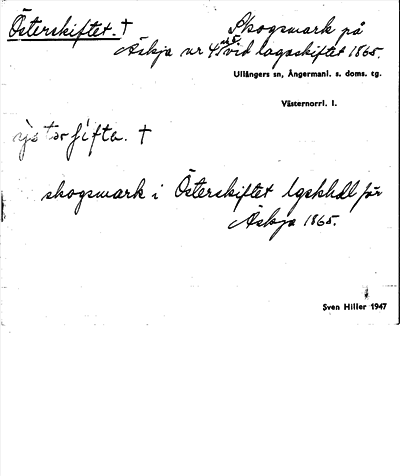 Österskiftet. † Skogsmark på
Äskja nr 4 vid lagaskiftet 1865.
Ullångers sn, Ångermanl. s. doms. tg.
Västernorrl. l.
†
skogsmark i Österskiftet lgskhdl för
Äskja 1865.
Sven Hiller 1947